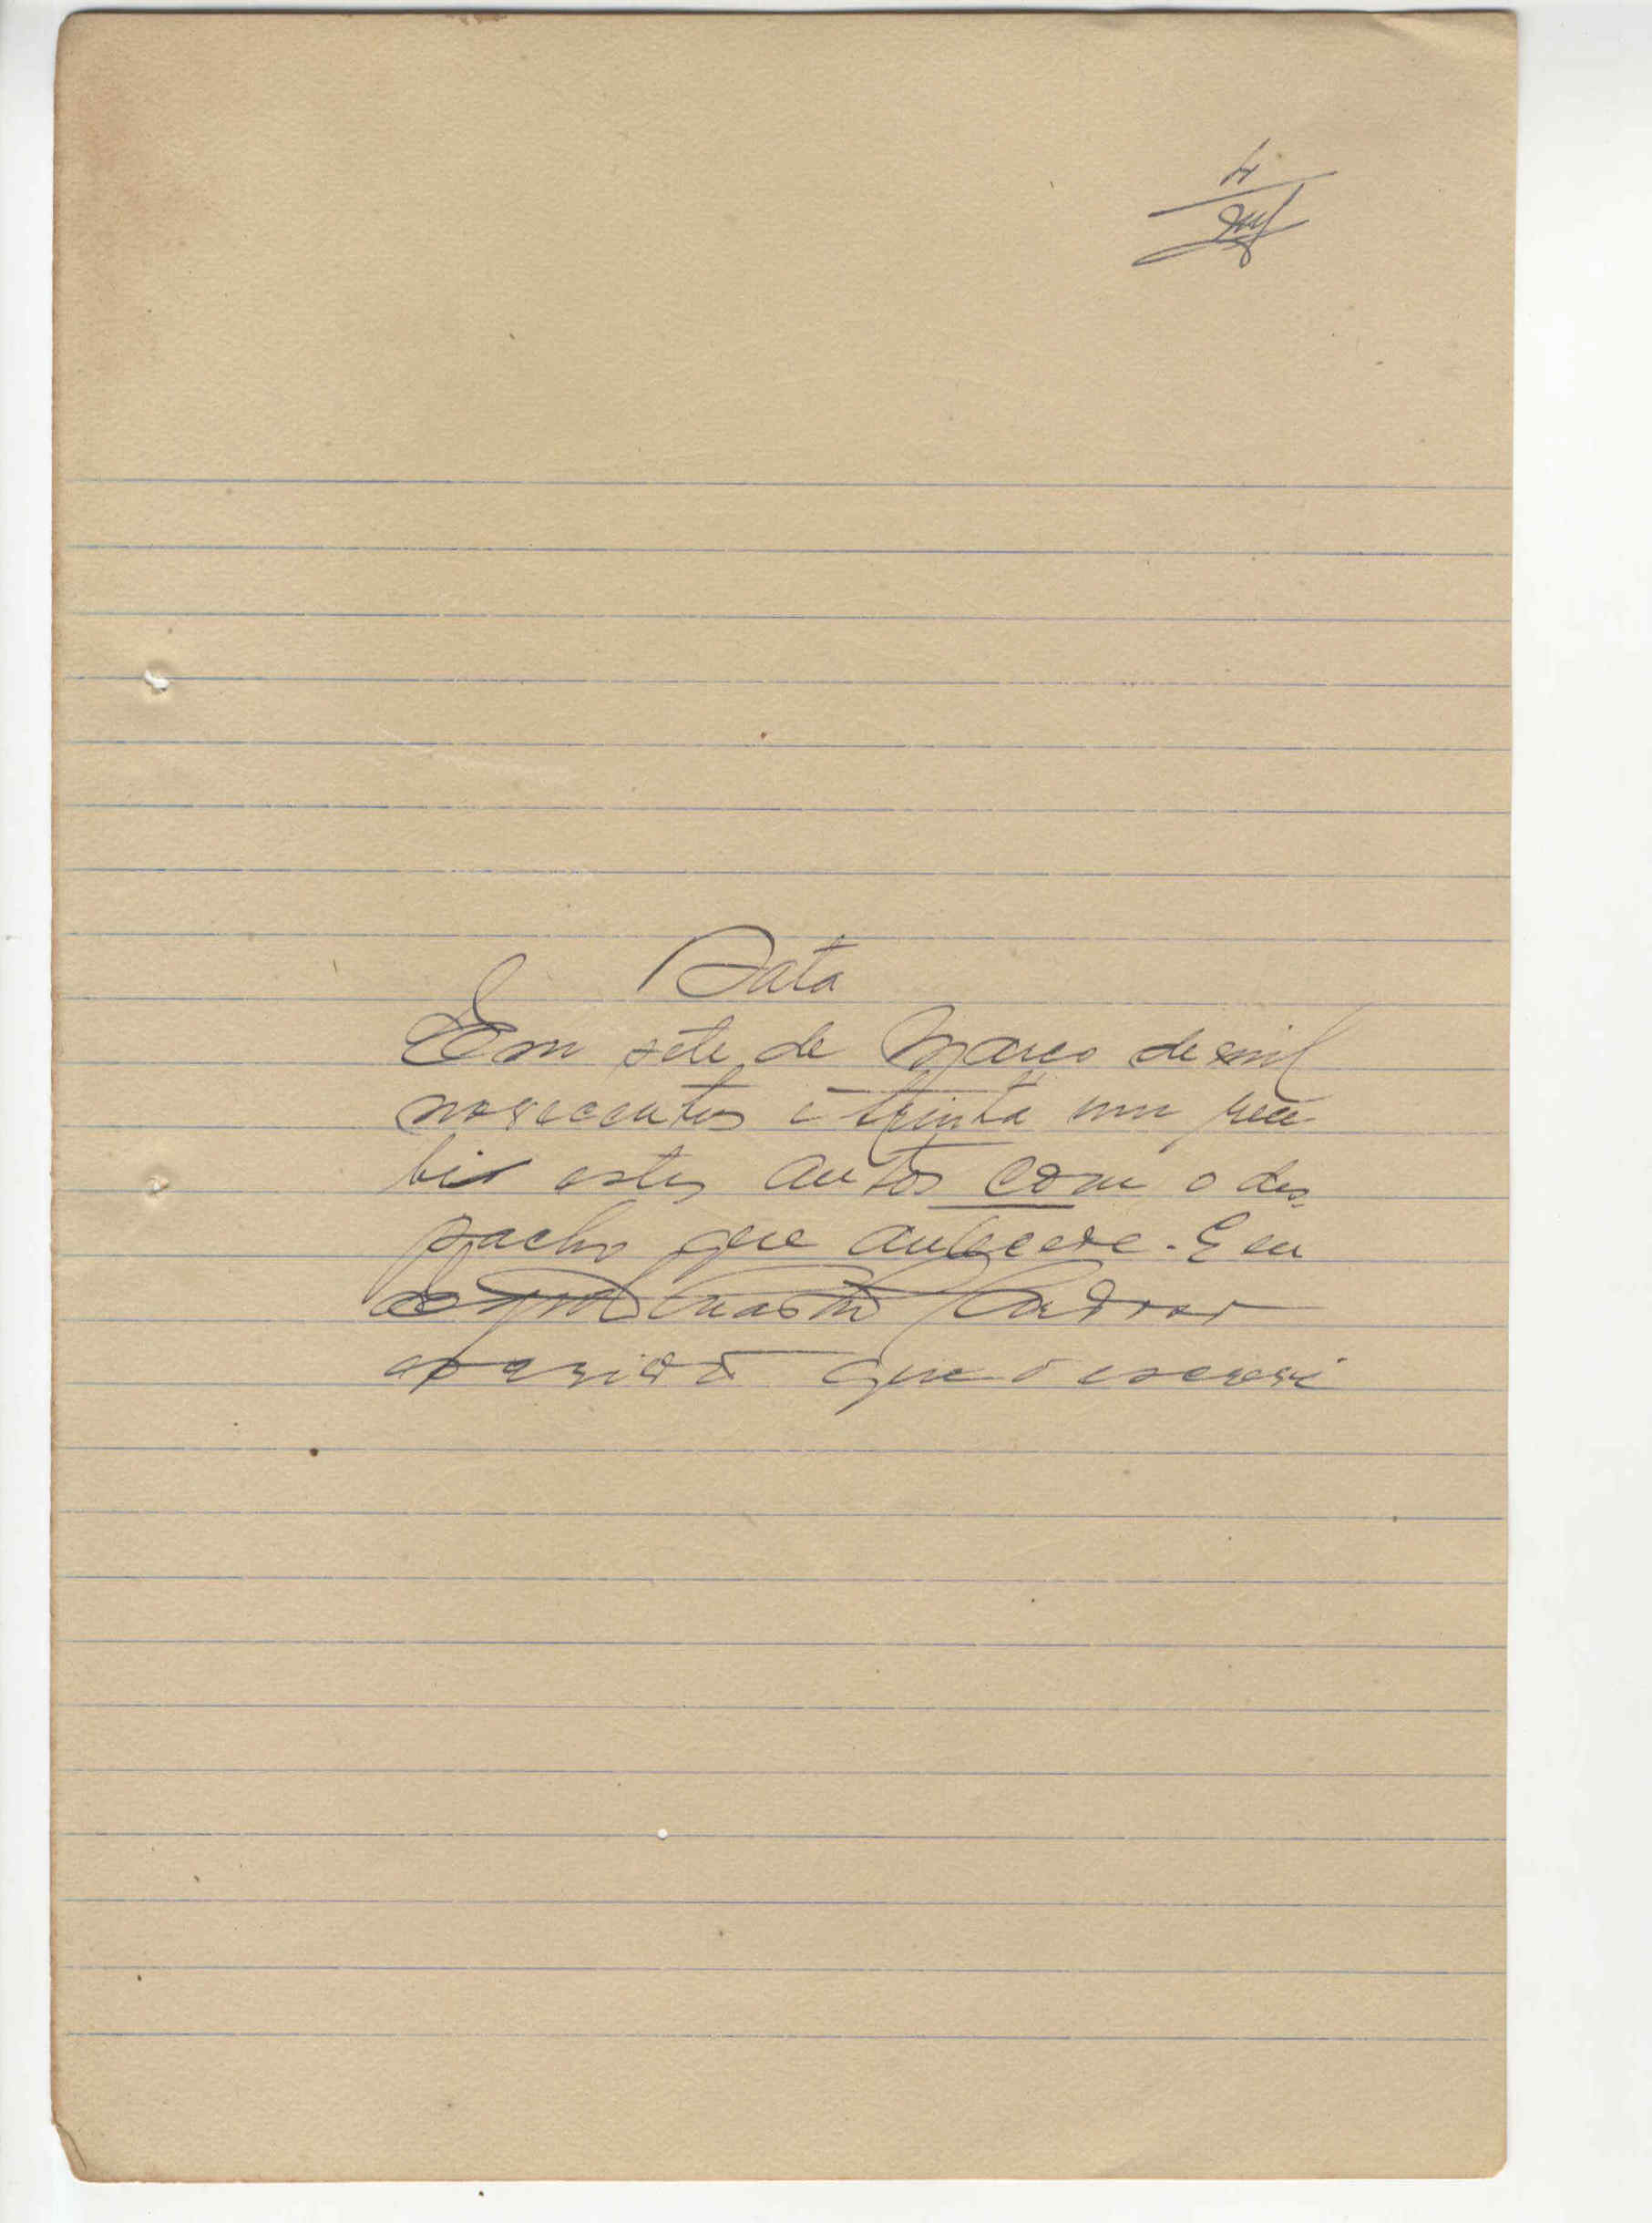 4
Data
Em sete de Março de mil
novecentos e trinta um rece
bi estes autos com o des
pacho que antecede. E eu
escrivão que o escrevi